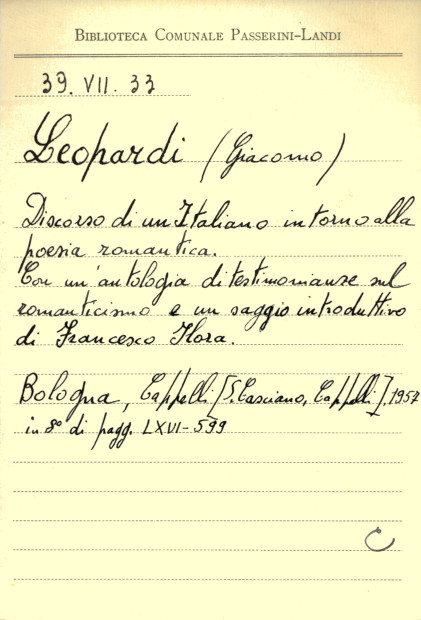 BIBLIOTECA COMUNALE PASSERINI-LANDI
39. VII. 33
Leopardi (Giacomo)
Discorso di un Italiano intorno alla
poesia romantica.
Con un'antologia di testimonianze sul
romanticismo e un saggio introduttivo
di Francesco Flora.
Bologna, Cappelli [S. Casciano, Cappelli], 1957
in 8° di pagg. LXVI-599
C